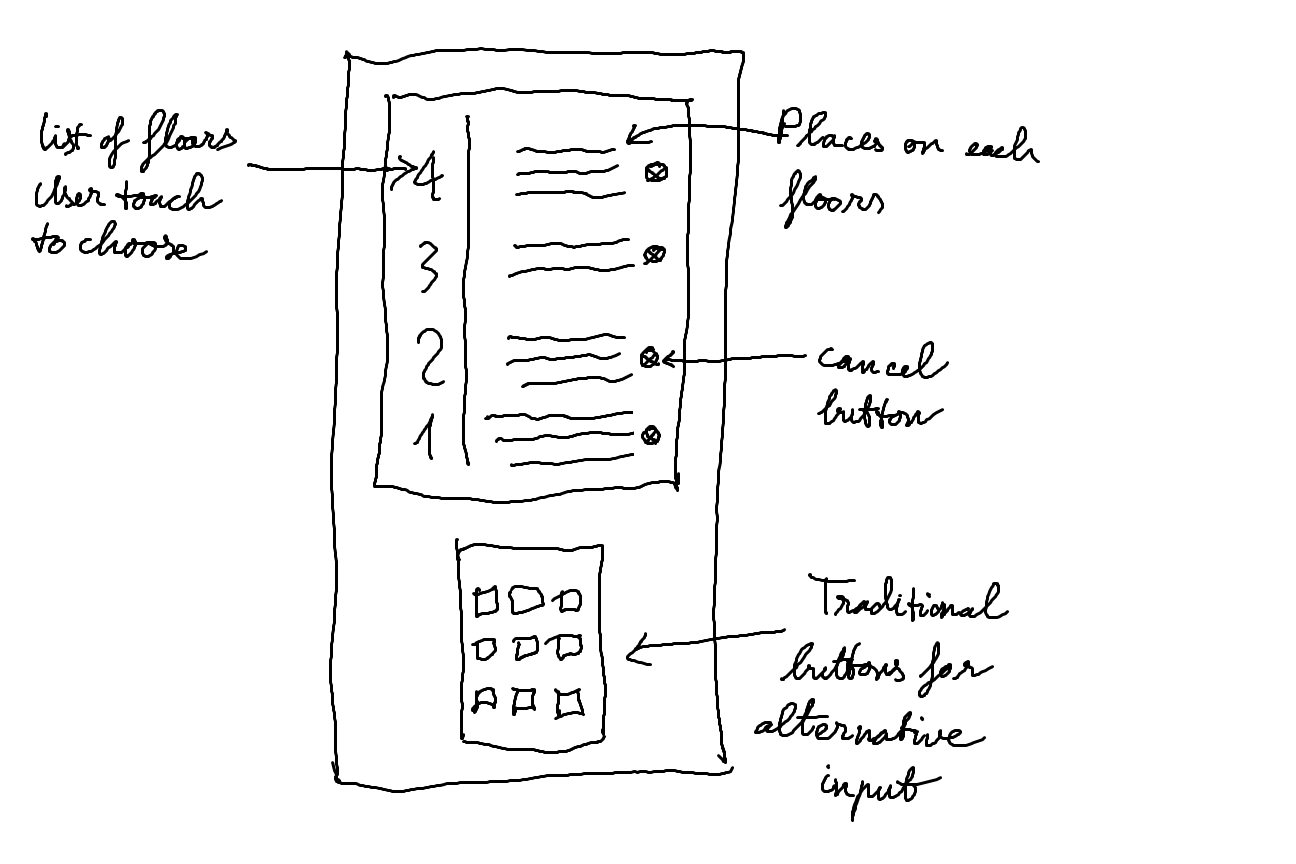 list of floors
User touch
to choose
4
3
2
1
Places on each
floors
cancel
button
Traditional
buttons for
alternative
input